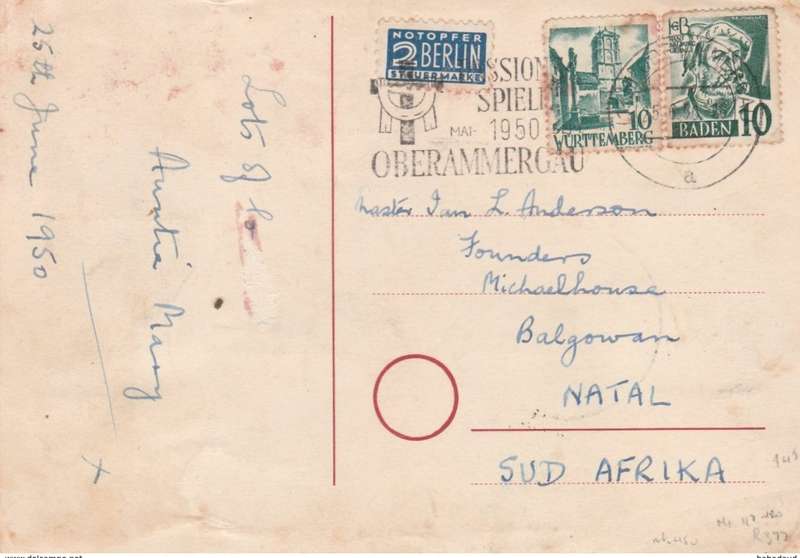 25th June 1950
Lots of lo
Auntie Mary
x
NOTOPFER
2 BERLIN
STEUERMARKE
SSION
SPIEL
MAI-
1950
OBERAMMERGAU
10
WÜRTTEMBERG
BADEN 10
a
Master Ian L. Anderson
Founders
Michaelhouse
Balgowan
NATAL
SUD AFRIKA